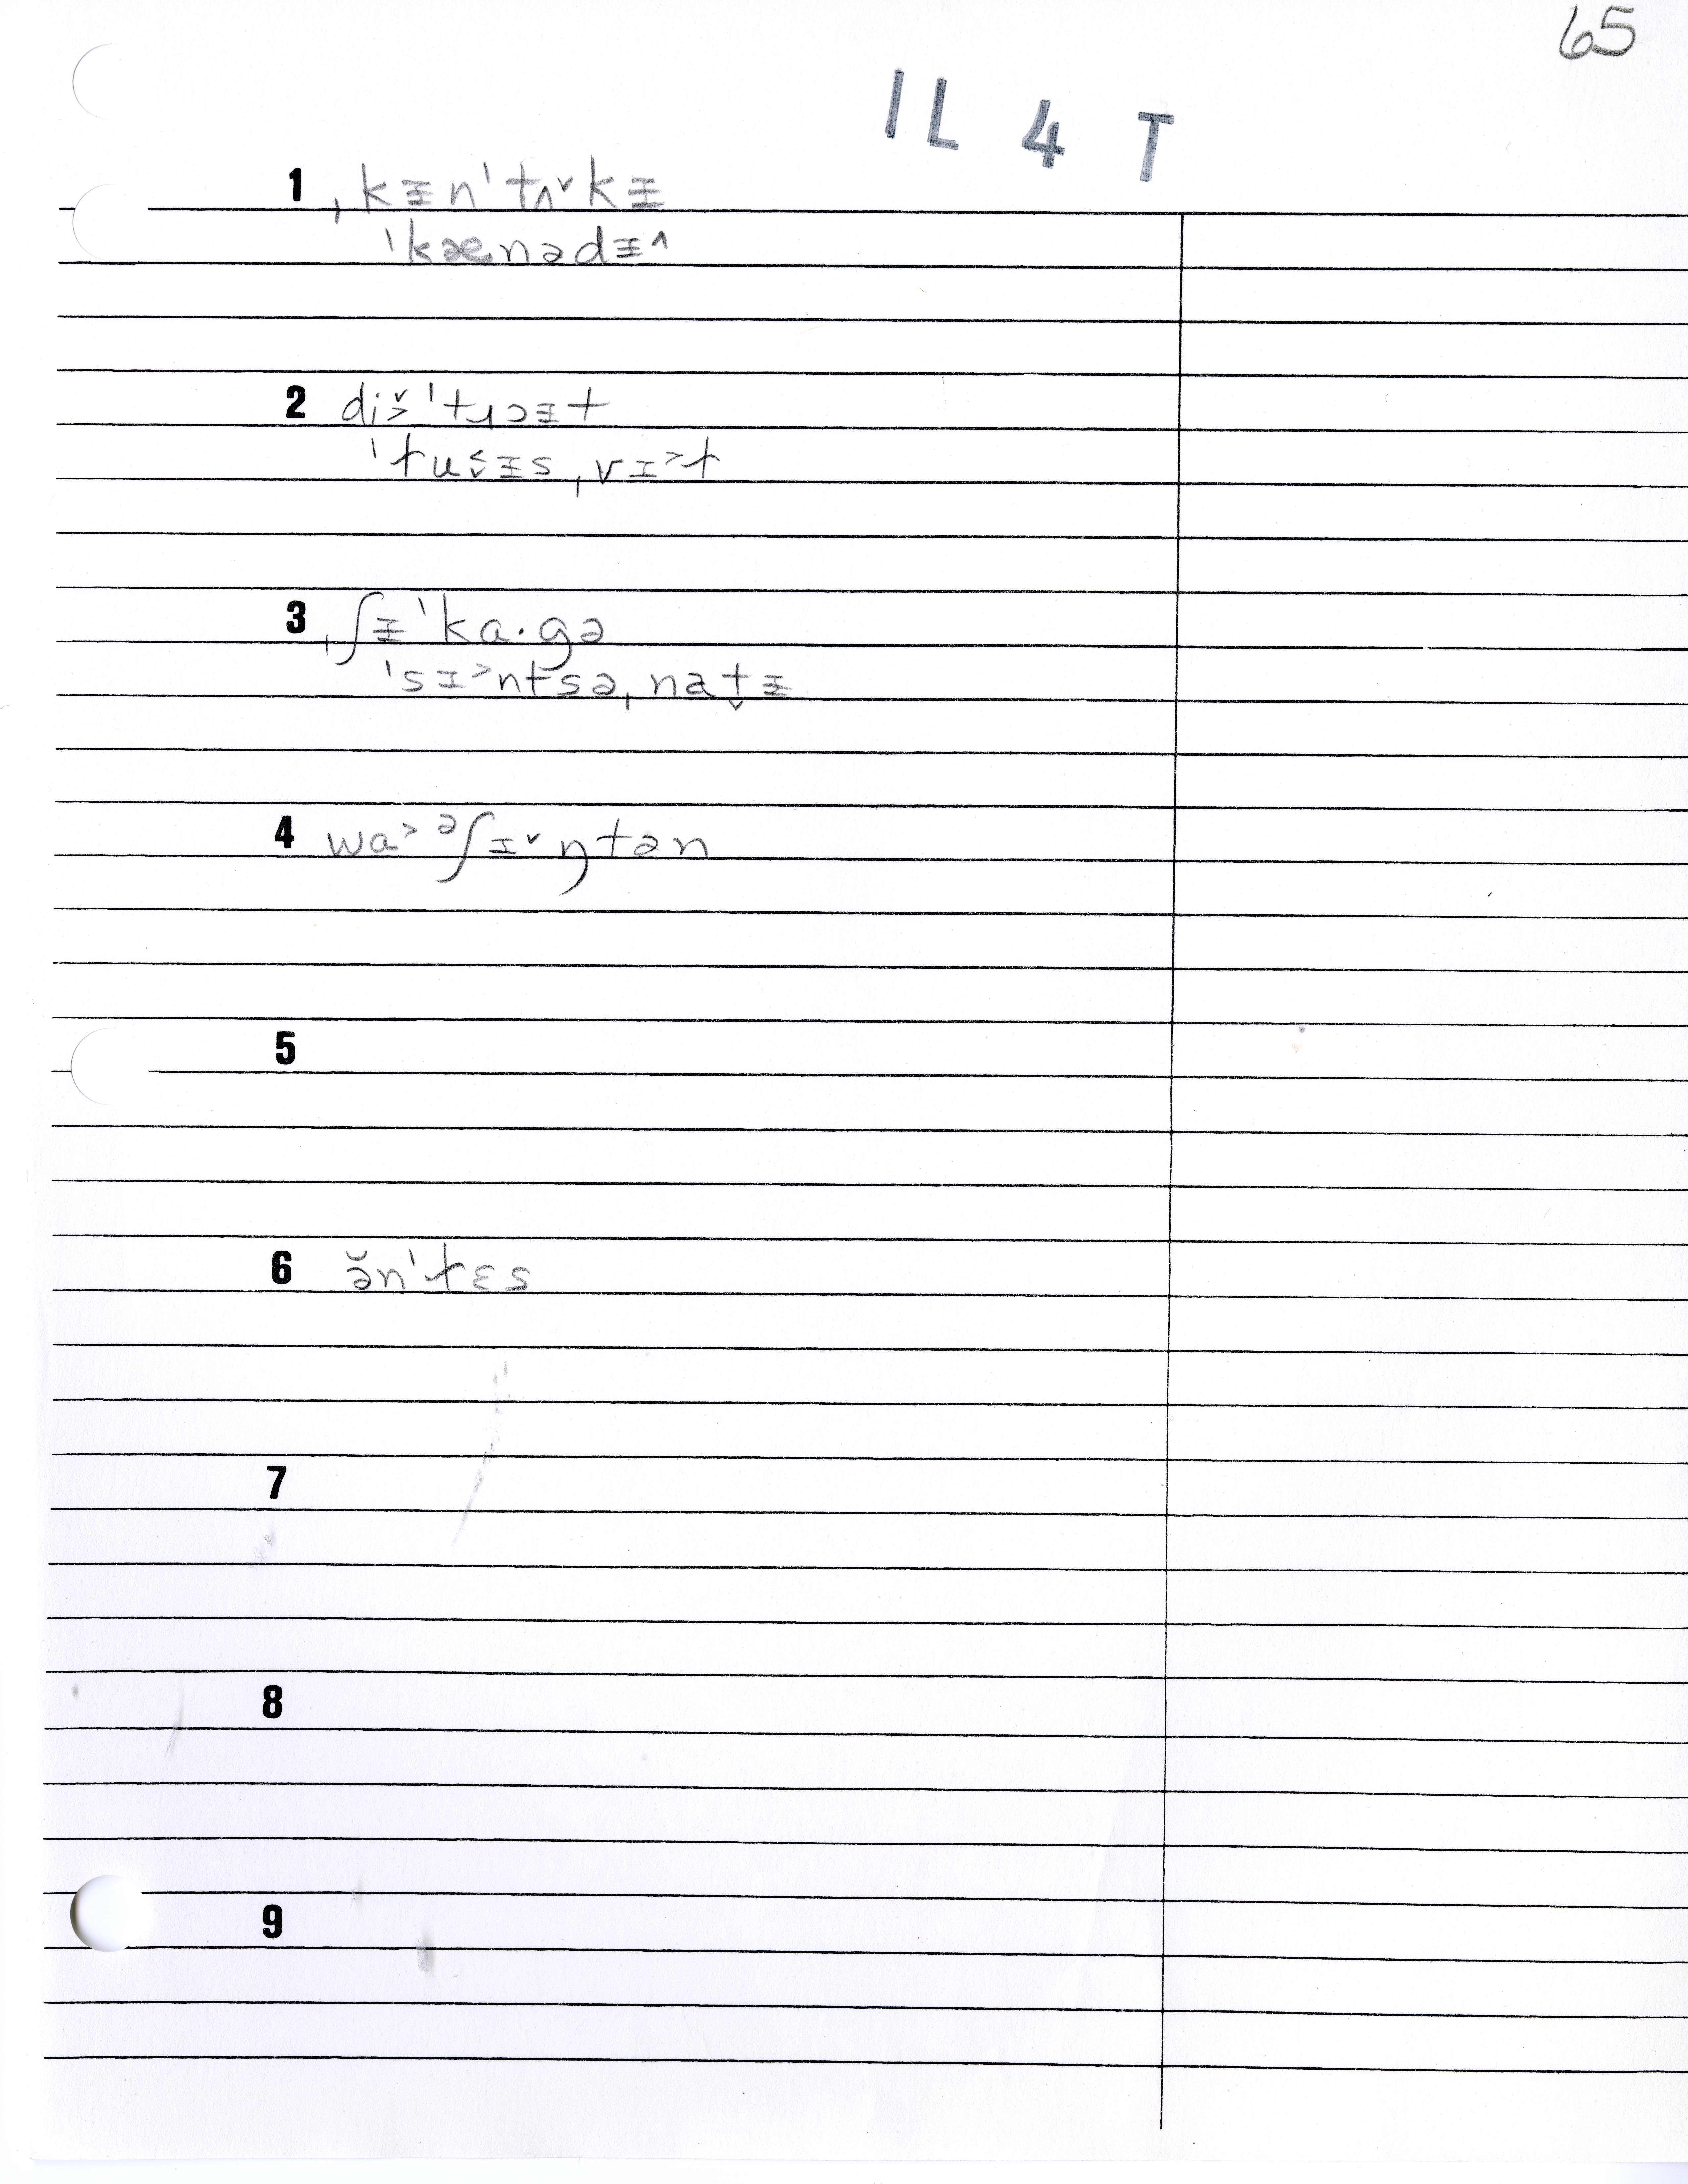 65
IL 4 T
1 ˌkᵻn'tʌ˅kᵻ
'kænədᵻ^
2 di˅˃'tɹɔᵻt
'tu˂˅ᵻs,vɪ˃t
3 ˌʃᵻ'ka·gə
'sɪ˃ntsəˌnat̬ᵻ
4 wa˃ᵊʃɪ˅ŋtən
5
6 ə̆n'tɛs
7
8
9